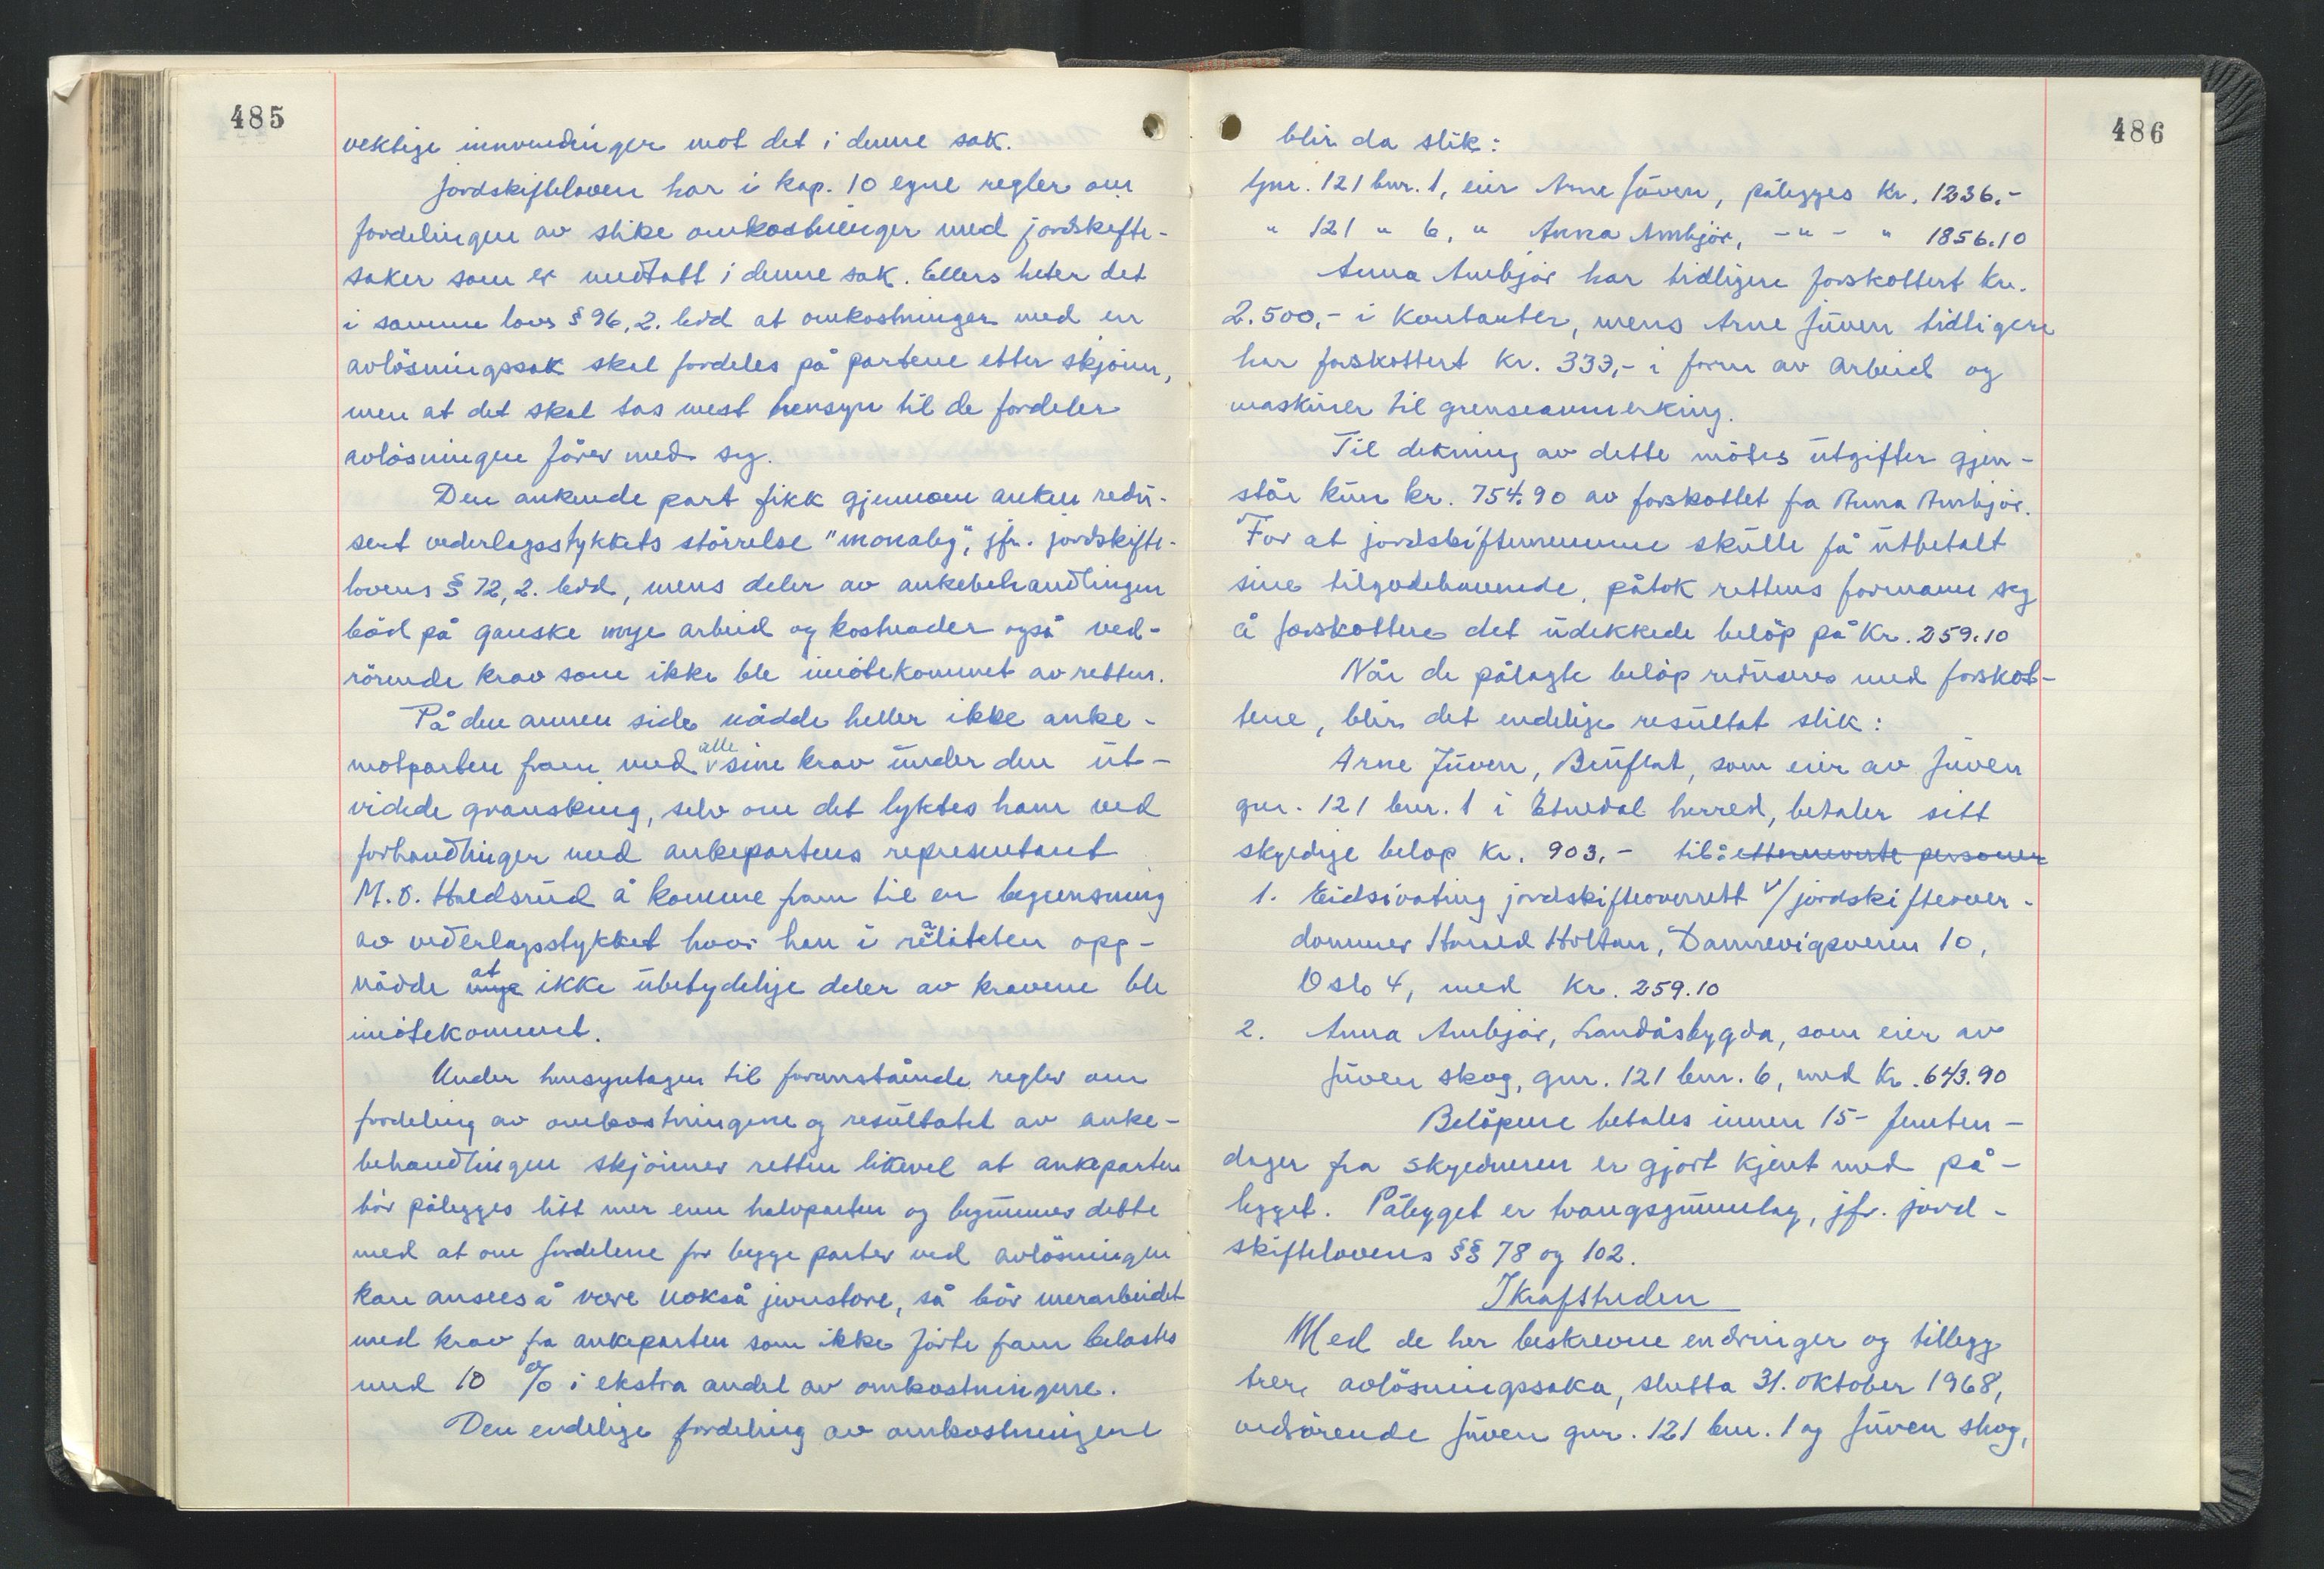 485
vektige innvendinger mot det i denne sak.
Jordskifteloven har i kap. 10 egne regler om
fordelingen av slike omkostninger med jordskifte-
saker som er nedtatt i denne sak. Ellers heter det
i samme lovs § 96, 2. ledd at omkostninger med en
avlösningssak skal fordeles på partene etter skjönn,
men at det skal tas mest hensyn til de fordeler
avlösningen förer med seg.
Den ankende part fikk gjennom anken redu-
sert vederlagsstykkets störrelse "monaleg", jfr. jordskifte-
lovens § 72, 2. ledd, mens deler av ankebehandlingen
böd på ganske mye arbeid og kostnader også ved-
rörende krav som ikke ble imötekommet av retten.
På den annen side nådde heller ikke anke-
motparten fram med alle sine krav under den ut-
videde gransking, selv om det lyktes ham ved
forhandlinger med ankepartens representant
M. O. Haldsrud å komme fram til en begrensning
av vederlagsstykket hvor han i realiteten opp-
nådde at mye ikke ubetydelige deler av kravene ble
imötekommet.
Under hensyntagen til foranstående regler om
fordeling av omkostningene og resultatet av anke-
behandlingen skjönner retten likevel at ankeparten
bör pålegges litt mer enn halvparten og begrunner dette
med at om fordelene for begge parter ved avlösningen
kan ansees å være nokså jevnstore, så bör merarbeidet
med krav fra ankeparten som ikke förte fram belastes
med 10 % i ekstra andel av omkostningene.
Den endelige fordeling av omkostningene
486
blir da slik:
Gnr. 121 bnr. 1, eier Arne Juven, pålegges Kr. 1236.-
" 121 " 6, " Anna Ambjör, -"- " 1856.10
Anna Ambjör har tidligere forskottert kr.
2.500,- i kontanter, mens Arne Juven tidligere
har forskottert Kr. 333,- i form av arbeid og
maskiner til grenseavmerking.
Til dekning av dette mötes utgifter gjen-
står kun kr. 754.90 av forskottet fra Anna Ambjör.
For at jordskiftemennene skulle få utbetalt
sine tilgodehavende, påtok rettens formann seg
å forskottere det udekkede belöp på Kr. 259.10
Når de pålagte belöp reduseres med forskot-
tene, blir det endelige resultat slik:
Arne Juven, Bruflat, som eier av Juven
gnr. 121 bnr. 1 i Etnedal herred, betaler sitt
skyldige belöp Kr. 903,- til: etternevnte personer
1. Eidsivating jordskifteoverrett v/ jordskifteover-
dommer Harald Holtan, Dannevigsveien 10,
Oslo 4, med Kr. 259.10
2. Anna Ambjör, Landåsbygda, som eier av
Juven skog, gnr. 121 bnr. 6, med Kr. 643.90
Belöpene betales innen 15- femten-
dager fra skyldneren er gjort kjent med på-
legget. Pålegget er tvangsgrunnlag, jfr. jord-
skiftelovens §§ 78 og 102.
Ikrafttreden
Med de her beskrevne endringer og tillegg
trer avlösningssaka, slutta 31. oktober 1968,
vedrörende Juven gnr. 121 bnr. 1 og Juven skog,